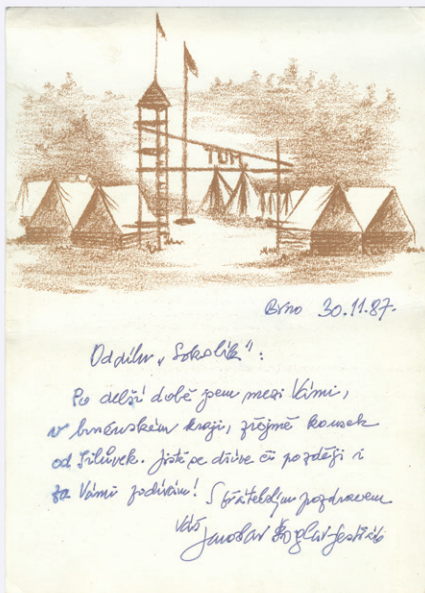 Brno 30.11.87.
Oddílu „Sokolík":
Po delší době jsem mezi Vámi,
v brněnském kraji, zřejmě kousek
od Silůvek. Jistě se dříve či později i
za Vámi podívám! S přátelským pozdravem
Váš
Jaroslav Foglar-Jestřáb